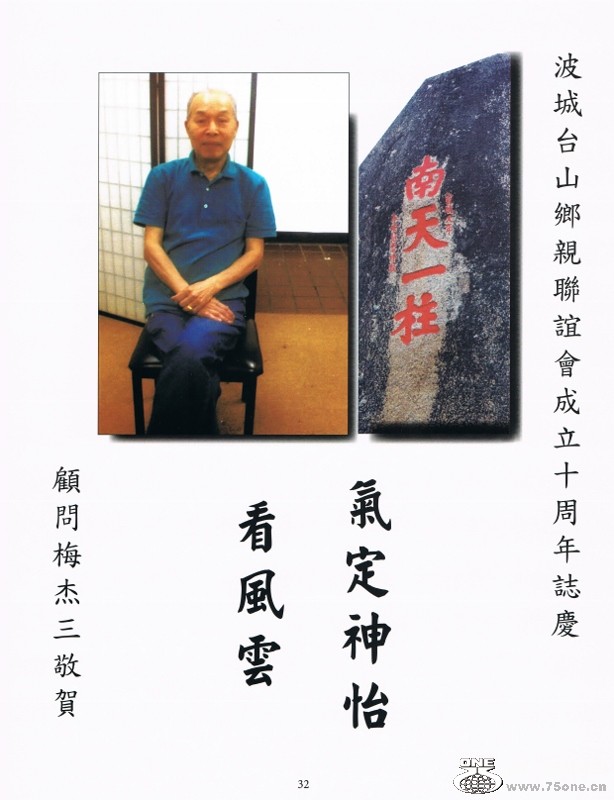 波城台山鄉親聯誼會成立十周年誌慶
南天一柱
氣定神怡
看風雲
顧問梅杰三敬賀
32
ONE
www.75one.cn